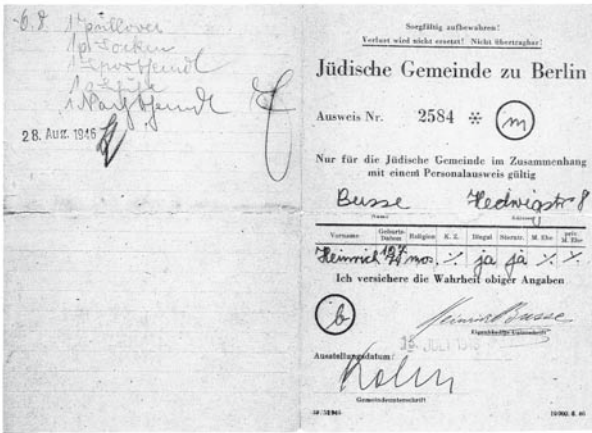 6.8. 1 Pullover
1 p. Socken
1 Sporthemd
1
1 Nachthemd
28. Aug. 1946
Sorgfältig aufbewahren!
Verlust wird nicht ersetzt! Nicht übertragbar!
Jüdische Gemeinde zu Berlin
Ausweis Nr. 2584 ※ m
Nur für die Jüdische Gemeinde im Zusammenhang
mit einem Personalausweis gültig
Busse Hedwigstr 8
Name Adresse
Vorname Geburts-Datum Religion K. Z. Illegal Sterntr. M. Ehe priv. M. Ehe
Heinrich mos. ٪ ja ja ٪ ٪
Ich versichere die Wahrheit obiger Angaben
b
Heinrich Busse
Eigenhändige Unterschrift
Ausstellungsdatum:
Gemeindeunterschrift